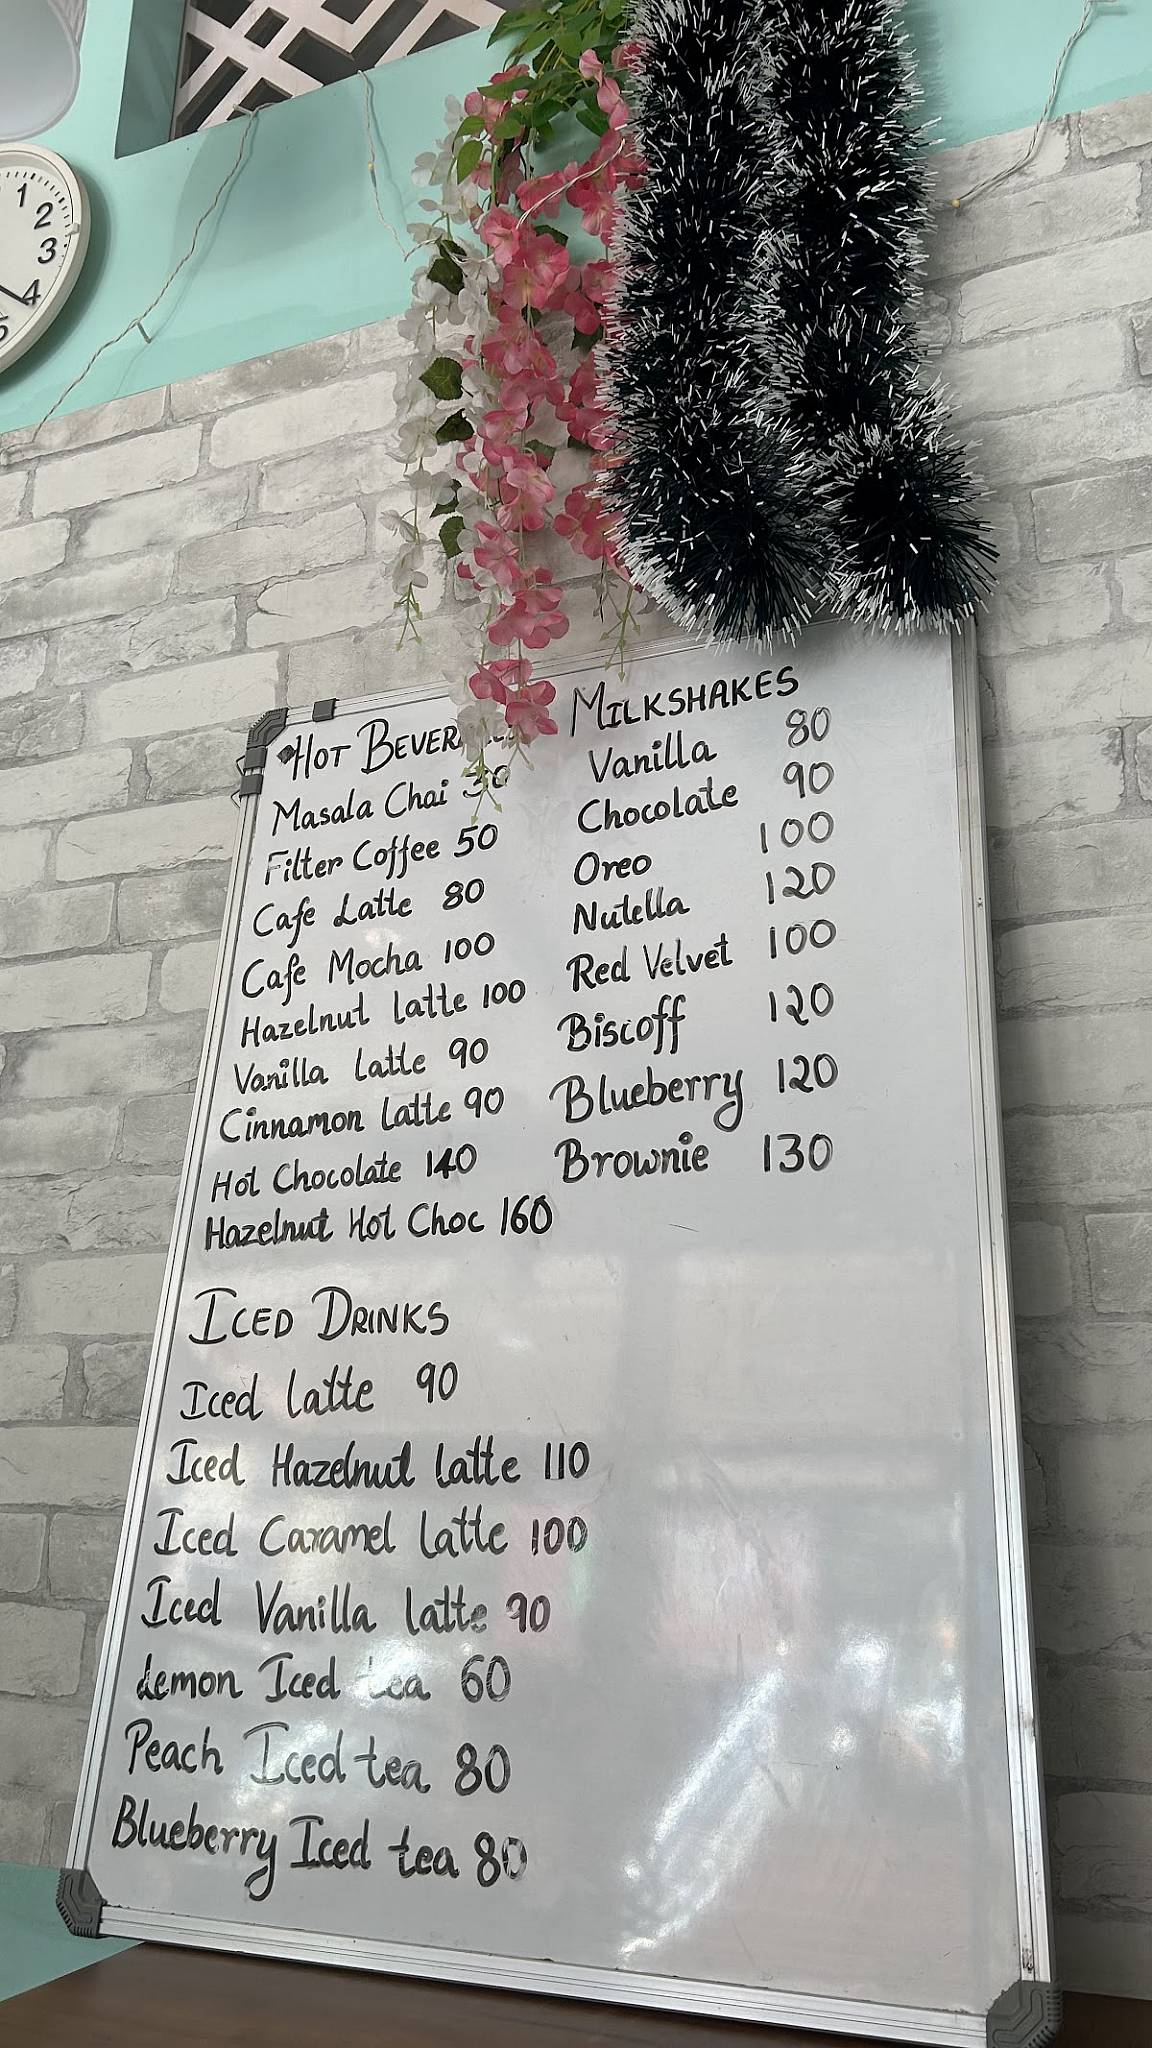 1
2
3
4
5
HOT
Masala Chai 30
Filter Coffee 50
Cafe Latte 80
Cafe Mocha 100
Hazelnut latte 100
Vanilla latte 90
Cinnamon latte 90
Hot Chocolate 140
Hazelnut Hot Choc 160
ICED DRINKS
Iced latte 90
Iced Hazelnut latte 110
Iced Caramel latte 100
Iced Vanilla latte 90
Lemon Iced tea 60
Peach Iced tea 80
Blueberry Iced tea 80
MILKSHAKES
Vanilla 80
Chocolate 90
Oreo 100
Nutella 120
Red Velvet 100
Biscoff 120
Blueberry 120
Brownie 130